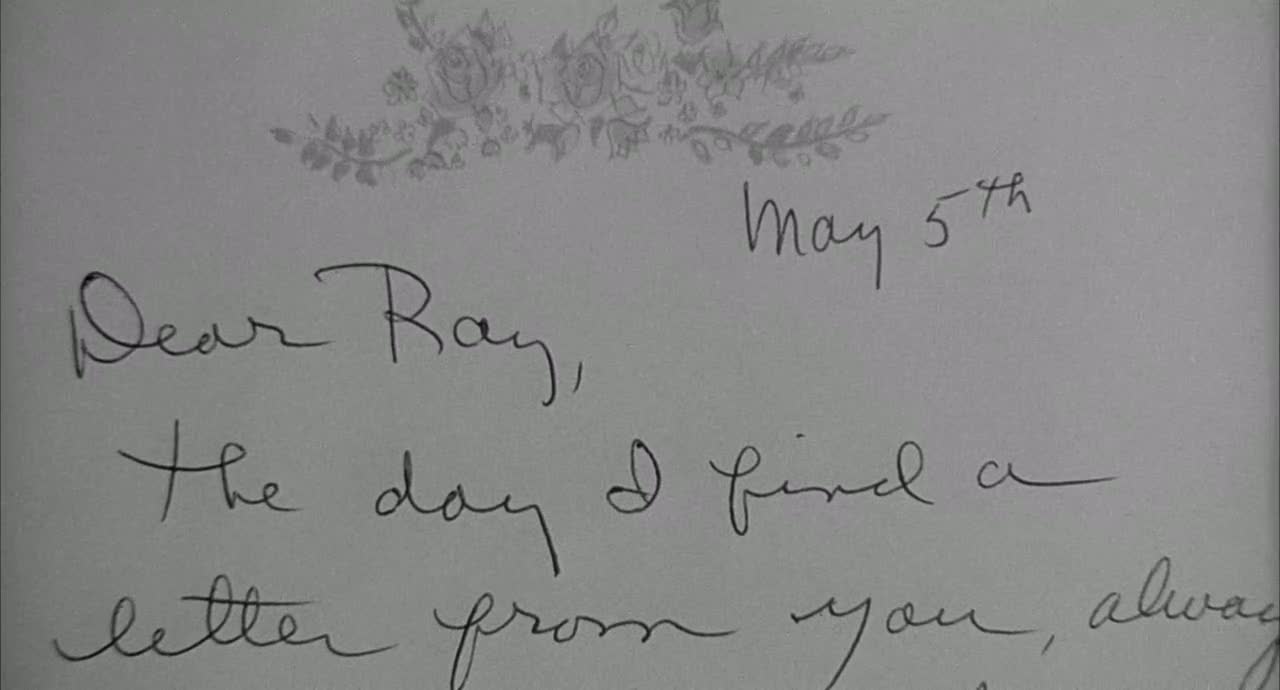 May 5th
Dear Ray,
The day I find a
letter from you, alway